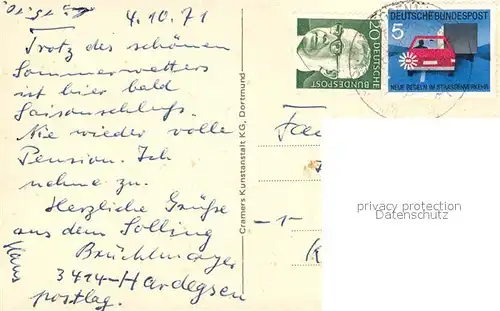 4.10.71
Trotz des schönen
Sommerwetters
ist hier bald
Saisonschluß.
Nie wieder volle
Pension. Ich
nehme zu.
Herzliche Grüße
aus dem Solling
3414-Hardegsen
postlag.
Cramers Kunstanstalt KG, Dortmund
20
DEUTSCHE
BUNDESPOST
DEUTSCHE BUNDESPOST
5
NEUE REGELN IM STRASSENVERKEHR
-1-
privacy protection
Datenschutz